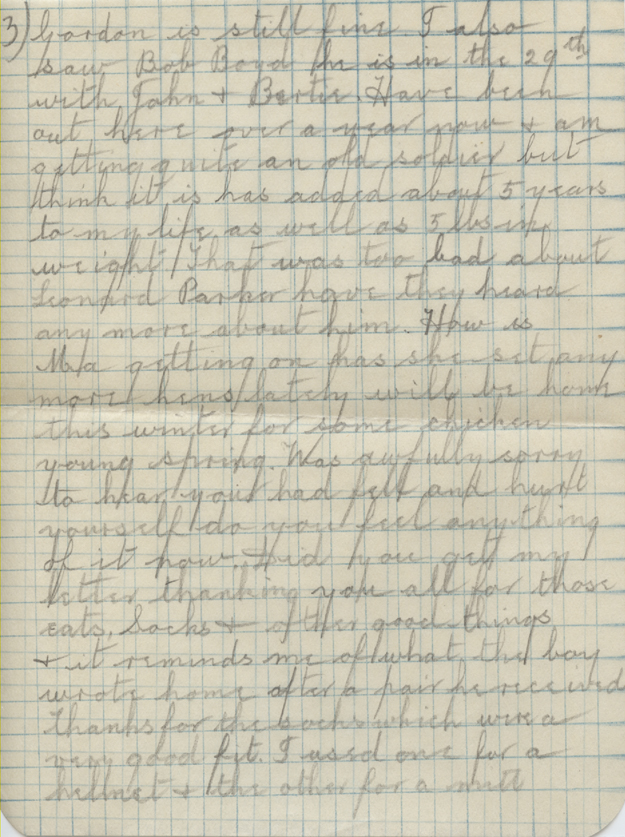 3) Gordon is still fine. I also
saw Bob Boyd he is in the 29th
with John + Bertie. Have been
out here over a year now + am
getting quite an old soldier but
think it is has added about 5 years
to my life as well as 5 lbs in
weight. That was too bad about
Leonard Parker have they heard
any more about him. How is
Ma getting on has she set any
more hens lately will be home
this winter for some chicken
young spring. Was awfully sorry
to hear you had fell and hurt
yourself do you feel anything
of it now. Did you get my
letter thanking you all for those
eats, Socks + other good things
+ it reminds me of what the boy
wrote home after a pair he received
Thanks for the socks which were a
very good fit. I used one for a
helmet + the other for a mitt